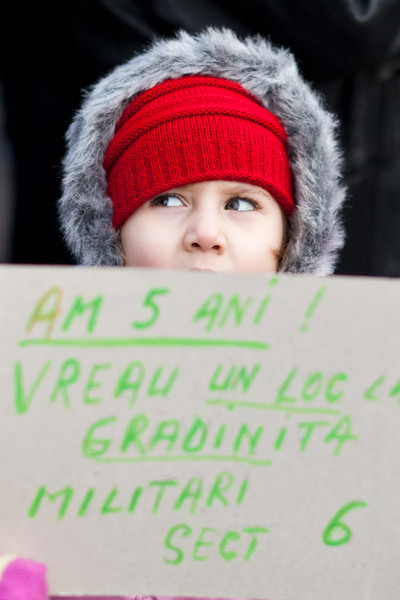 AM 5 ANi !
VREAU UN LOC LA
GRADINITA
MILITARI
SECT 6